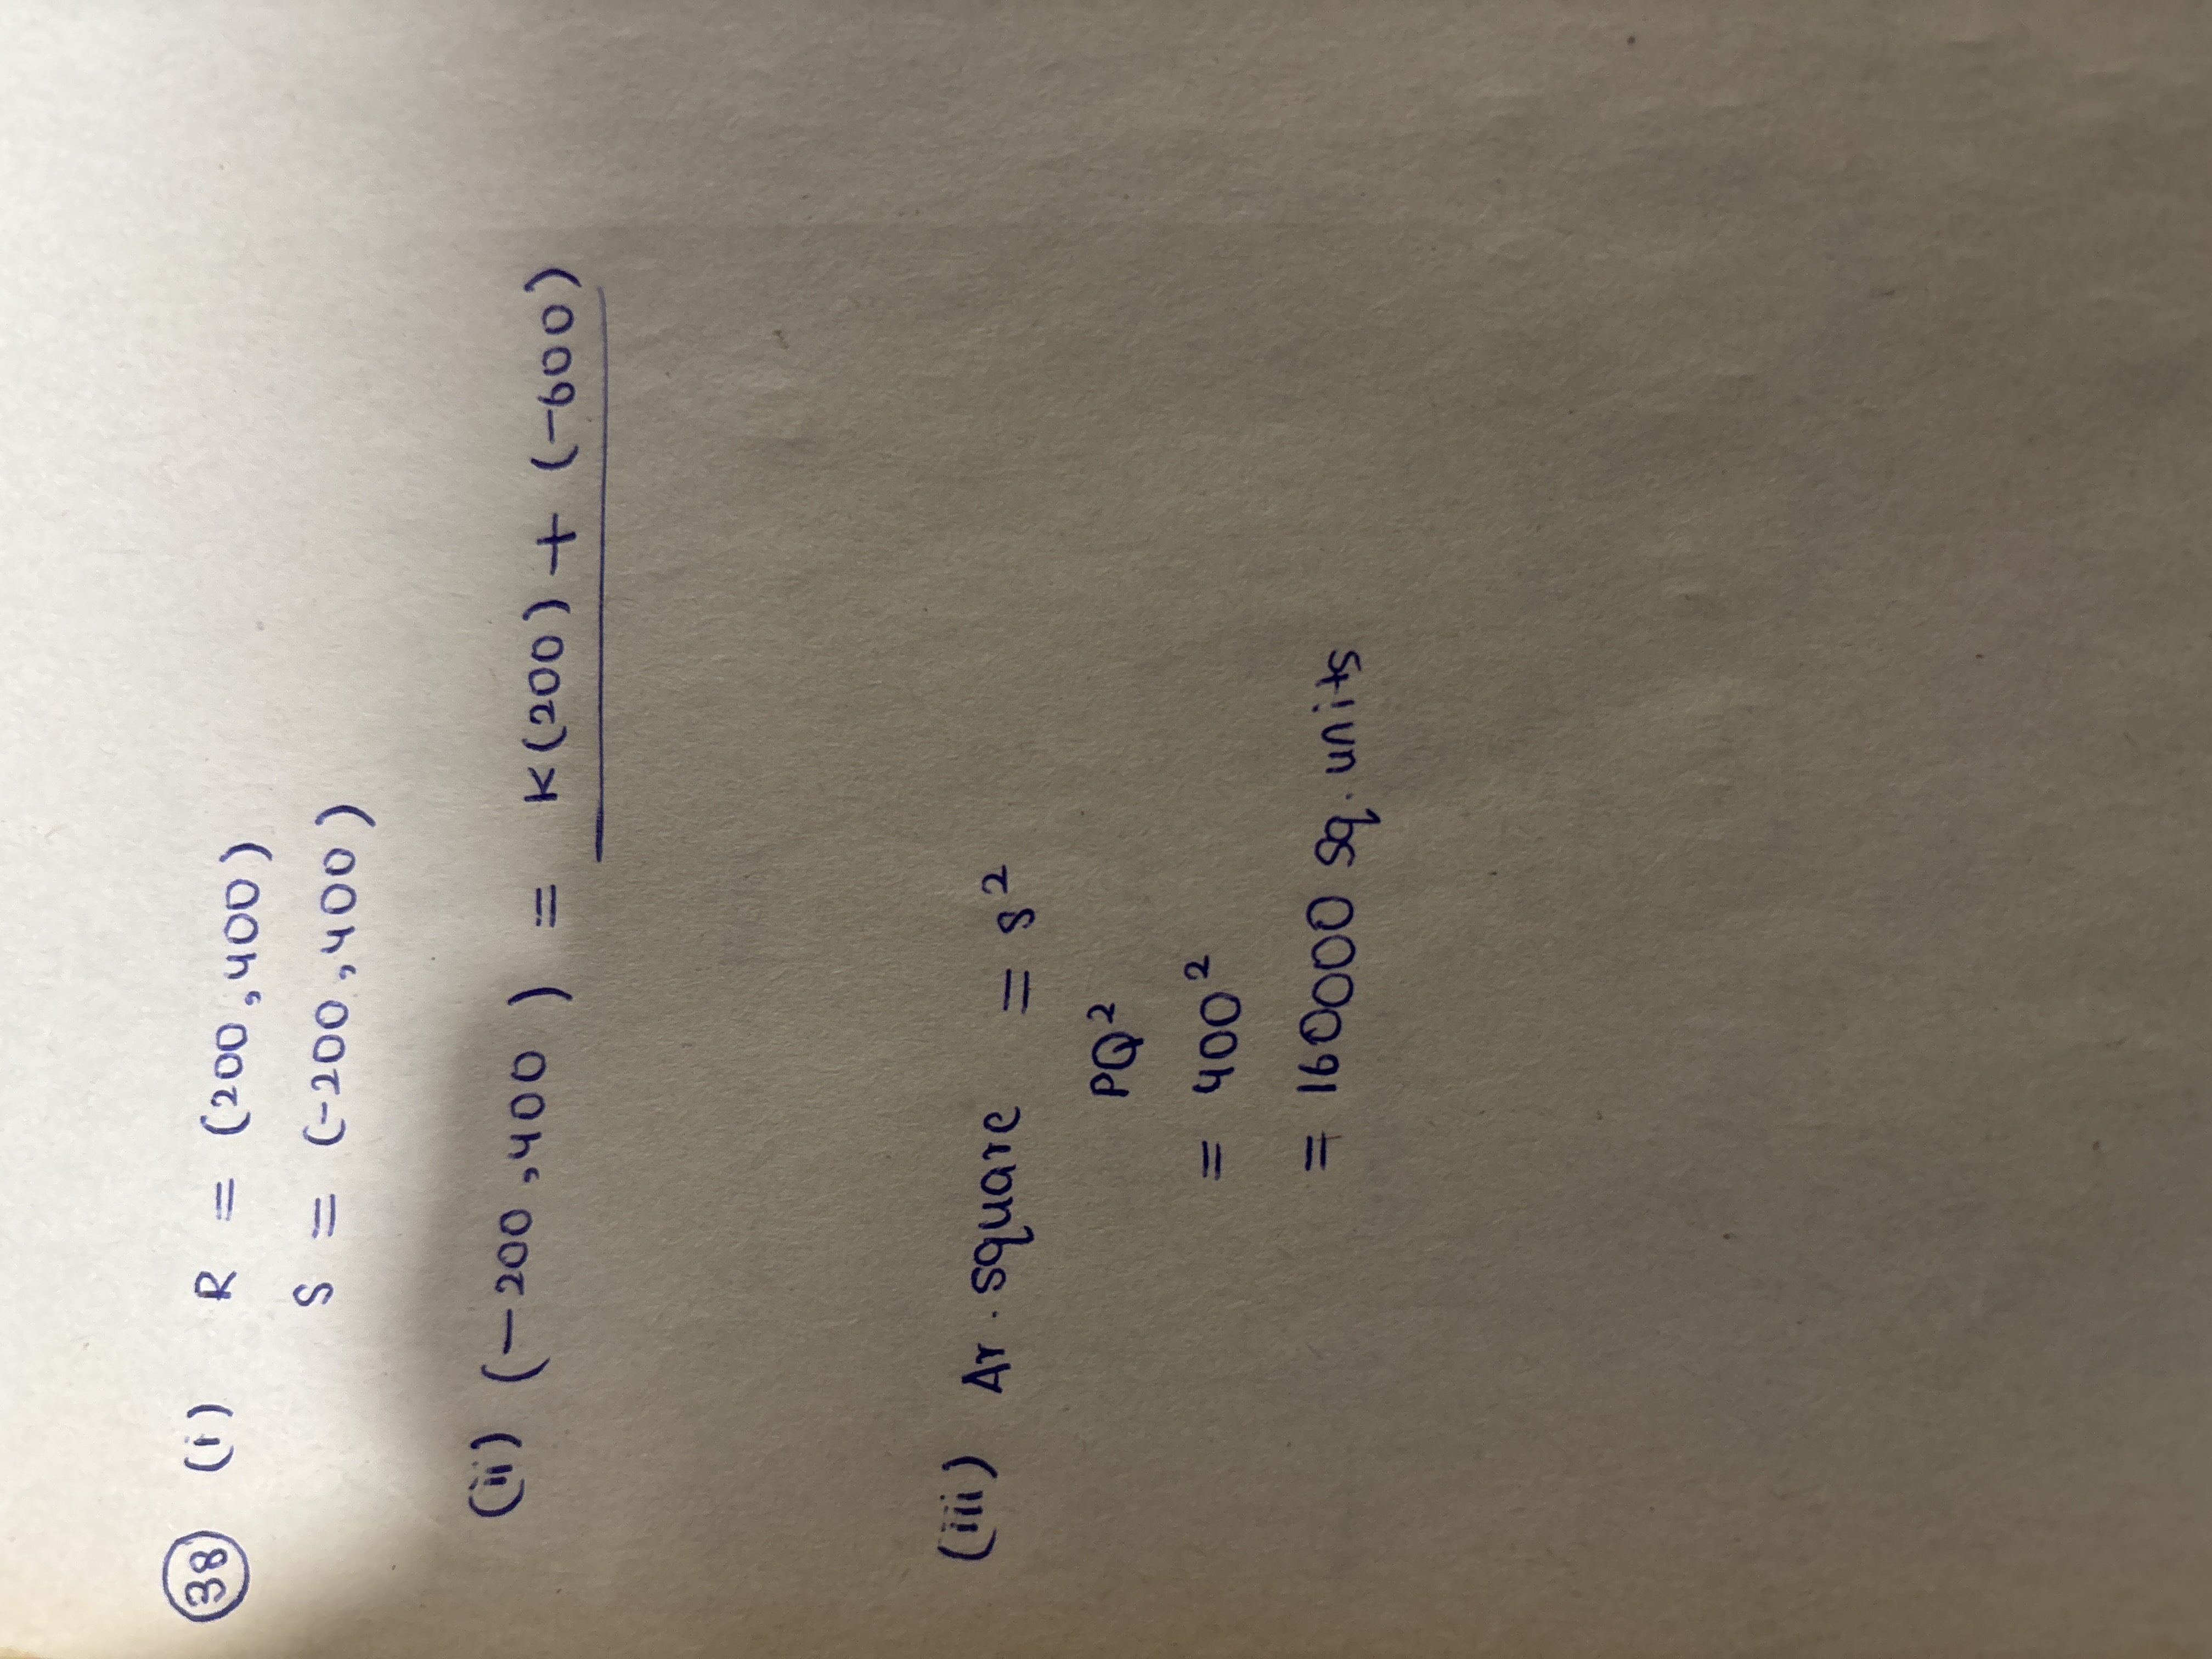 38 (i) R = (200, 400)
S = (-200, 400)
(ii) (-200, 400) = K(200) + (-600)
(iii) Ar. square = s²
PQ²
= 400²
= 160000 sq. units